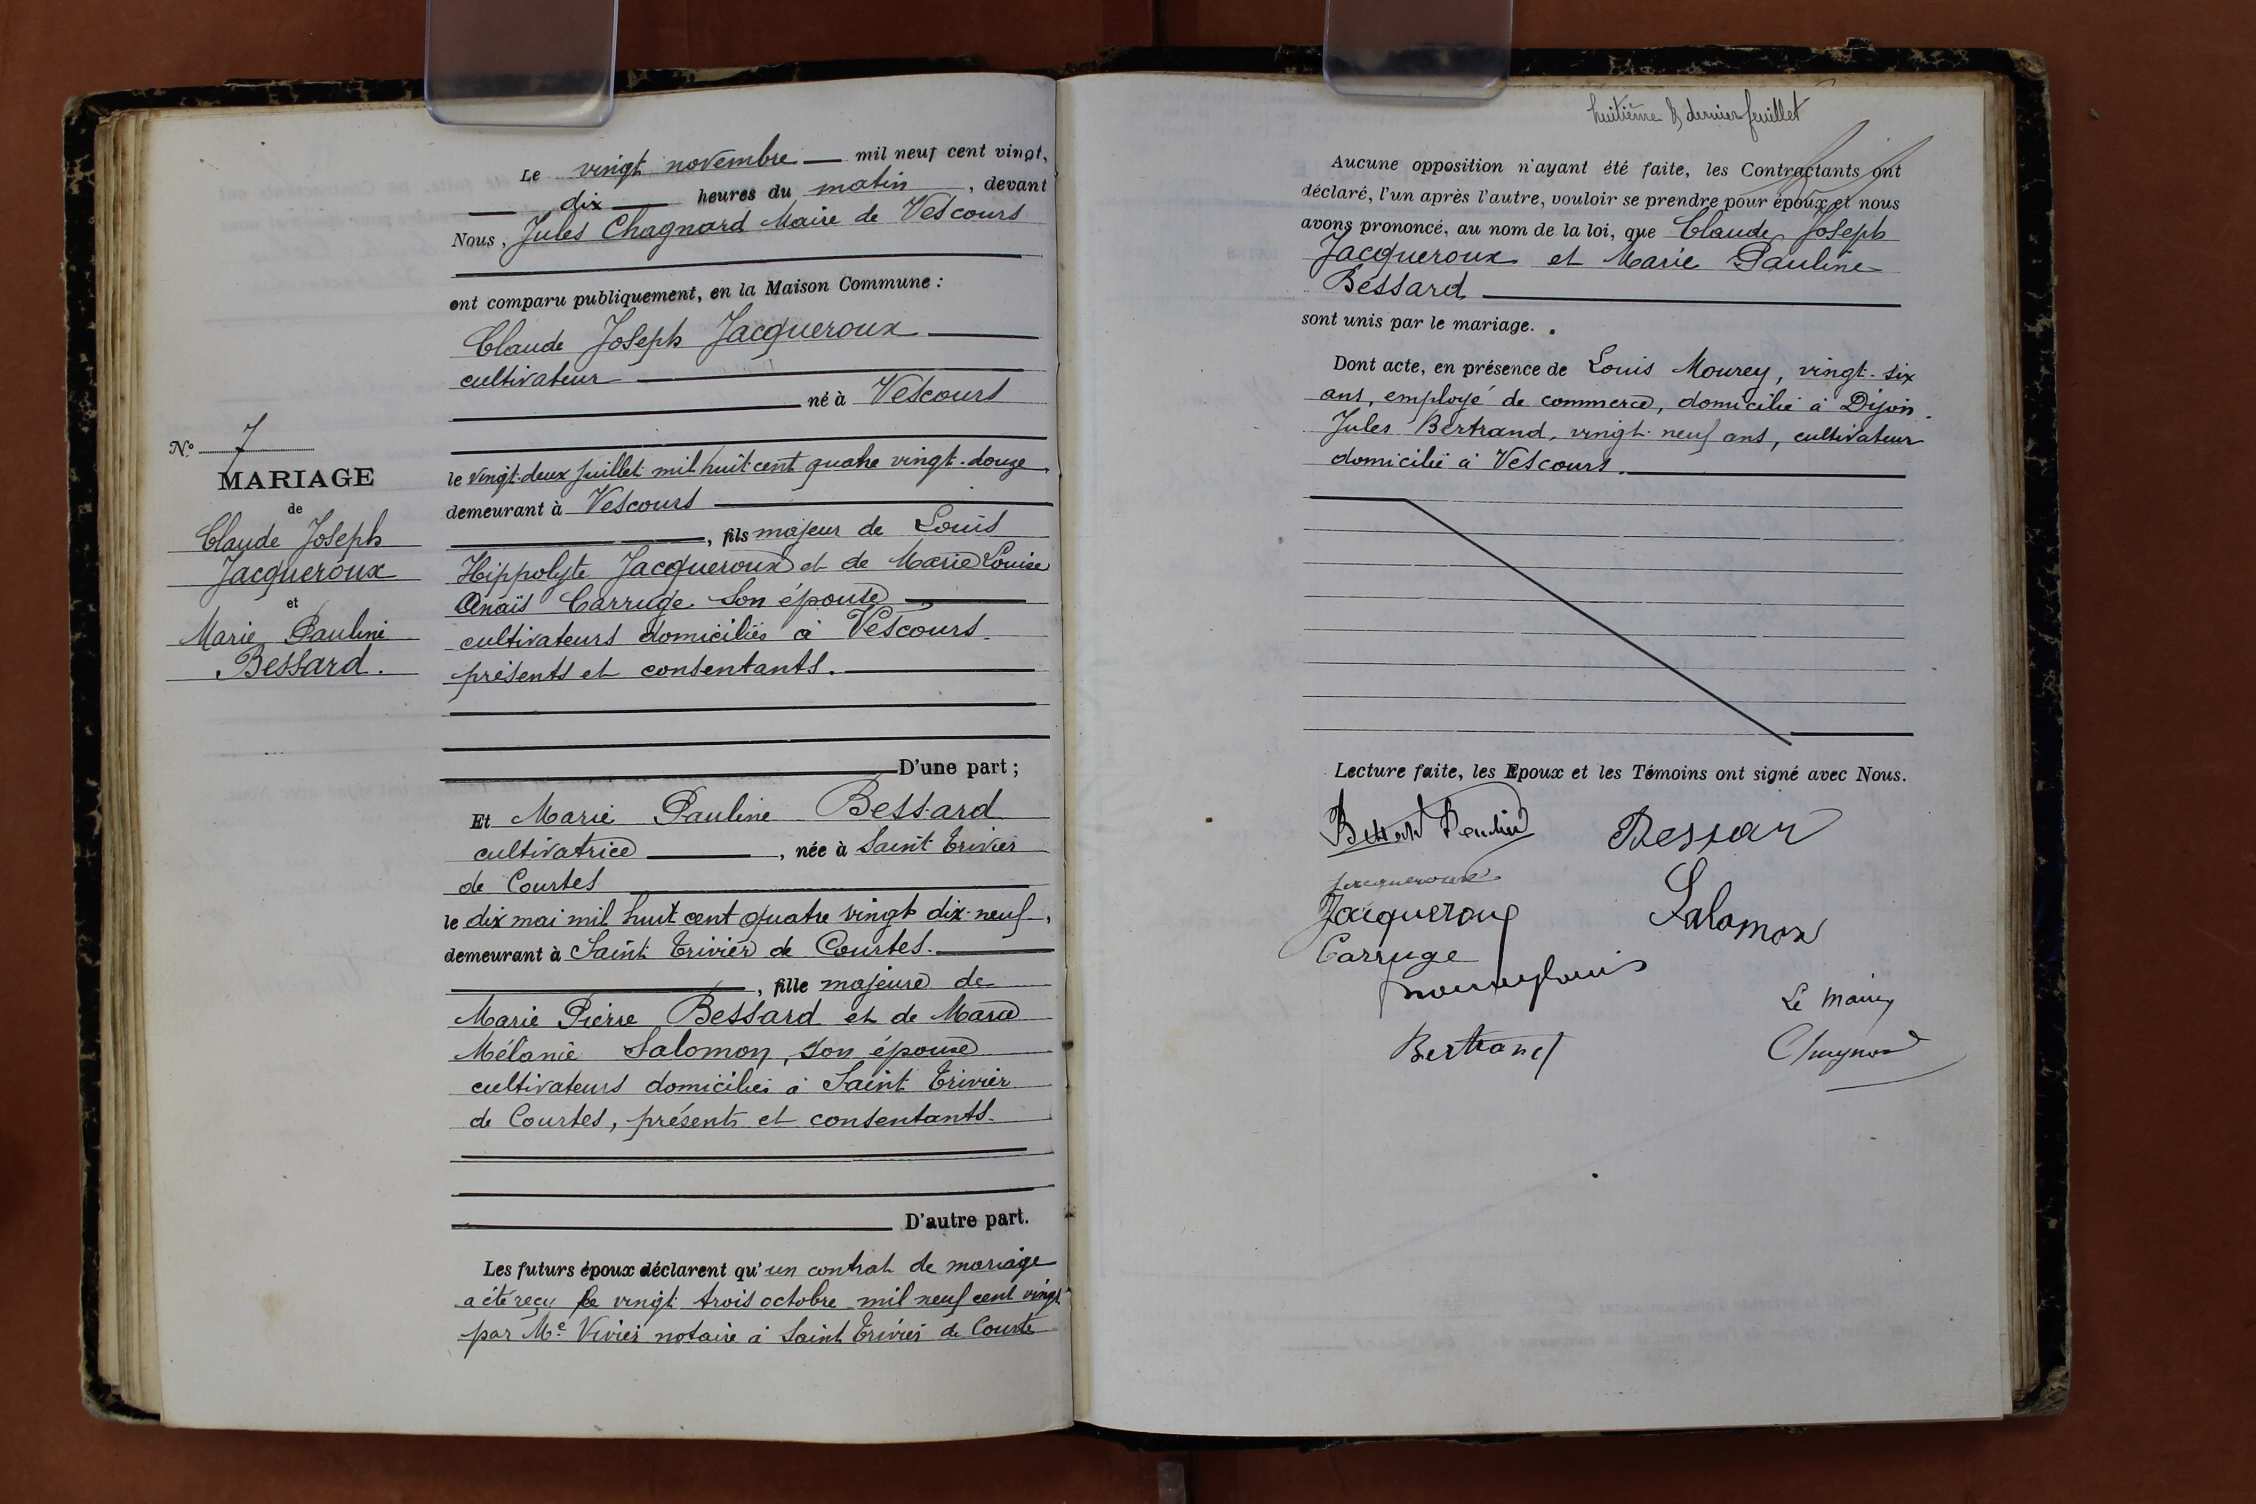 N.° 7
MARIAGE
de
Claude Joseph
Jacqueroux
et
Marie Pauline
Bessard.
Le vingt novembre mil neuf cent vingt,
dix heures du matin, devant
Nous, Jules Chagnard Maire de Vescours
ont comparu publiquement, en la Maison Commune :
Claude Joseph Jacqueroux
cultivateur
né à Vescours
le vingt-deux juillet mil huit cent quatre vingt-douze,
demeurant à Vescours
, fils majeur de Louis
Hippolyte Jacqueroux et de Marie Louise
Anaïs Carruge son épouse
cultivateurs domiciliés à Vescours.
présents et consentants.
D'une part ;
Et Marie Pauline Bessard
cultivatrice, née à Saint Trivier
de Courtes
le dix mai mil huit cent quatre vingt dix-neuf,
demeurant à Saint Trivier de Courtes.
, fille majeure de
Marie Pierre Bessard et de Marie
Mélanie Salomon, son épouse
cultivateurs domiciliés à Saint Trivier
de Courtes, présents et consentants.
D'autre part.
Les futurs époux déclarent qu'un contrat de mariage
a été reçu le vingt trois octobre mil neuf cent vingt
par Me Vivier notaire à Saint Trivier de Courte
huitième & dernier feuillet
Aucune opposition n'ayant été faite, les Contractants ont
déclaré, l'un après l'autre, vouloir se prendre pour époux et nous
avons prononcé, au nom de la loi, que Claude Joseph
Jacqueroux et Marie Pauline
Bessard
sont unis par le mariage.
Dont acte, en présence de Louis Mourey, vingt-six
ans, employé de commerce, domicilié à Dijon.
Jules Bertrand, vingt-neuf ans, cultivateur
domicilié à Vescours.
Lecture faite, les Epoux et les Témoins ont signé avec Nous.
Bessard Pauline Bessard
Jacqueroux
Jacqueroux Salomon
Carruge
Mourey Louis
Le Maire
Bertrand Chagnard